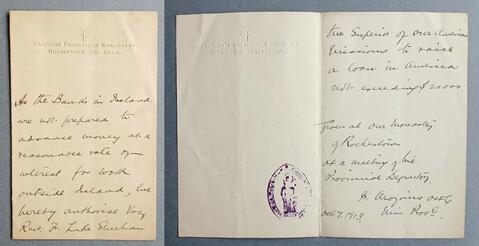 Capuchin Franciscan Monastery,
Rochestown, Co. Cork.
As the Banks in Ireland
are not prepared to
advance money at a
reasonable rate of
interest for work
outside Ireland, we
hereby authorise Very
Rev. Fr. Luke Sheehan
the Superior of our American
Missions to raise
a loan in America
not exceeding $20000.
Given at our Monastery
of Rochestown
at a meeting of the
Provincial Definitory
Fr. Aloysius OSFC
Min Prov.
Oct. 7. 1913.